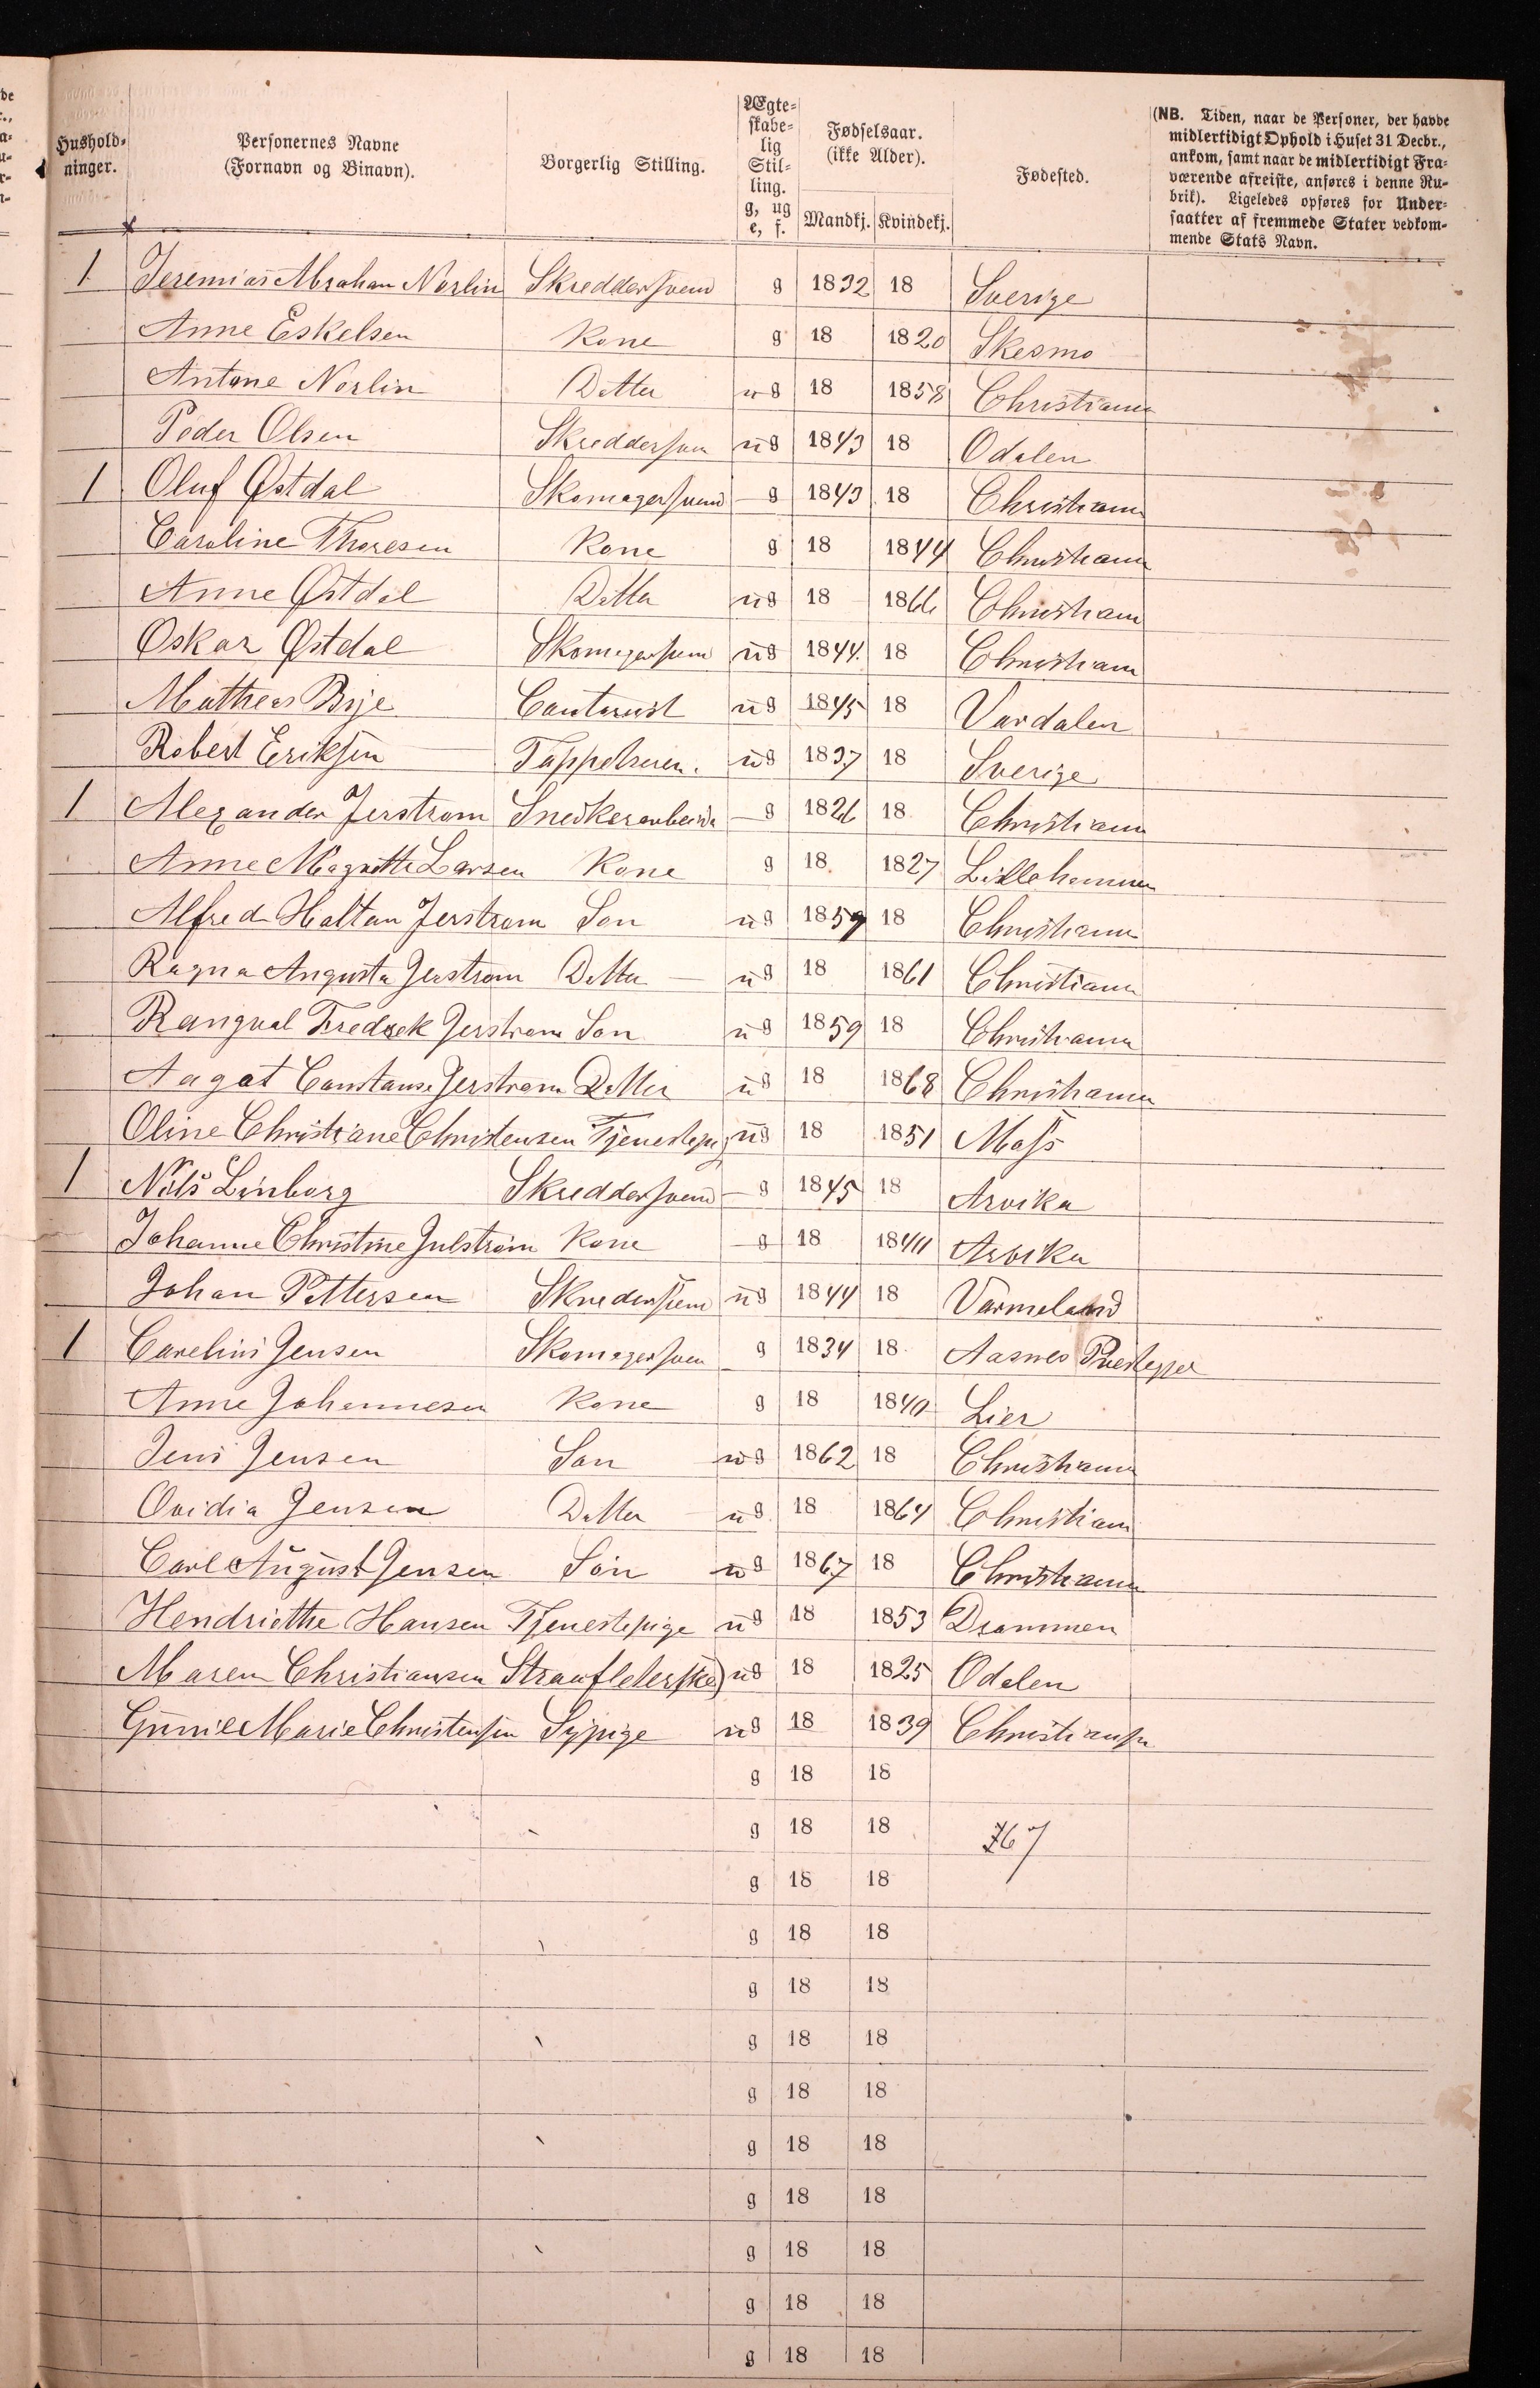 Hushold-
ninger.
Personernes Navne
(Fornavn og Binavn).
Borgerlig Stilling.
Ægte-
skabe-
lig
Stil-
ling.
g, ug
e, f.
Fødselsaar.
(ikke Alder).
Mandkj. Kvindekj.
Fødested.
(NB. Tiden, naar de Personer, der havde
midlertidigt Ophold i Huset 31 Decbr.,
ankom, samt naar de midlertidigt Fra-
værende afreiste, anføres i denne Ru-
brik). Ligeledes opføres for Under-
saatter af fremmede Stater vedkom-
mende Stats Navn.
1 Jeremias Abraham Norlin Skreddersvend g 1832 18 Sverige
Anne Eskelsen Kone g 18 1820 Skesmo
Antone Norlin Datter ug 18 1858 Christiania
Peder Olsen Skreddersven ug 1843 18 Odalen
1 Oluf Østdal Skomagersvend g 1843 18 Christiania
Caroline Thoresen Kone g 18 1844 Christiania
Anne Østdal Datter ug 18 1866 Christiania
Oskar Østdal Skomagersvend ug 1844. 18 Christiania
Mathias ug 1845 18 Værdalen
Robert Eriksen ug 1837 18 Sverige
1 Alexander Jerstrøm Snedkerarbeider g 1826 18 Christiania
Anne Magrethe Larsen Kone g 18 1827 Lillehammer
Alfred Haltan Jerstrøm Søn ug 1859 18 Christiania
Ragna Augusta Jerstrøm Datter ug 18 1861 Christiania
Rangval Fredrek Jerstrøm Søn ug 1859 18 Christiania
Aagot Constanse Jerstrøm Datter ug 18 1868 Christiania
Oline Christiane Christensen Tjenestepig ug 18 1851 Moss
1 Nils Linborg Skreddersvend g 1845 18 Arvika
Johanne Christine Julstrøm Kone g 18 Arvika
Johan Pettersen Skreddersvend ug 1844 18 Värmeland
1 Carelius Jensen Skomagersven g 1834 18 Aasnes Præstegjel
Anne Johannesen Kone g 18 1840 Lier
Jens Jensen Søn ug 1862 18 Christiania
Ovidia Jensen Datter ug 18 1864 Christiania
Carl August Jensen Søn ug 1867 18 Christiania
Hendriette Hansen Tjenestepige ug 18 1853 Drammen
Maren Christiansen ug 18 1825 Odalen
Gunil Marie Christensen Sypige ug 18 1839 Christiansu
g 18 18
g 18 18 767
g 18 18
g 18 18
g 18 18
g 18 18
g 18 18
g 18 18
g 18 18
g 18 18
g 18 18
g 18 18